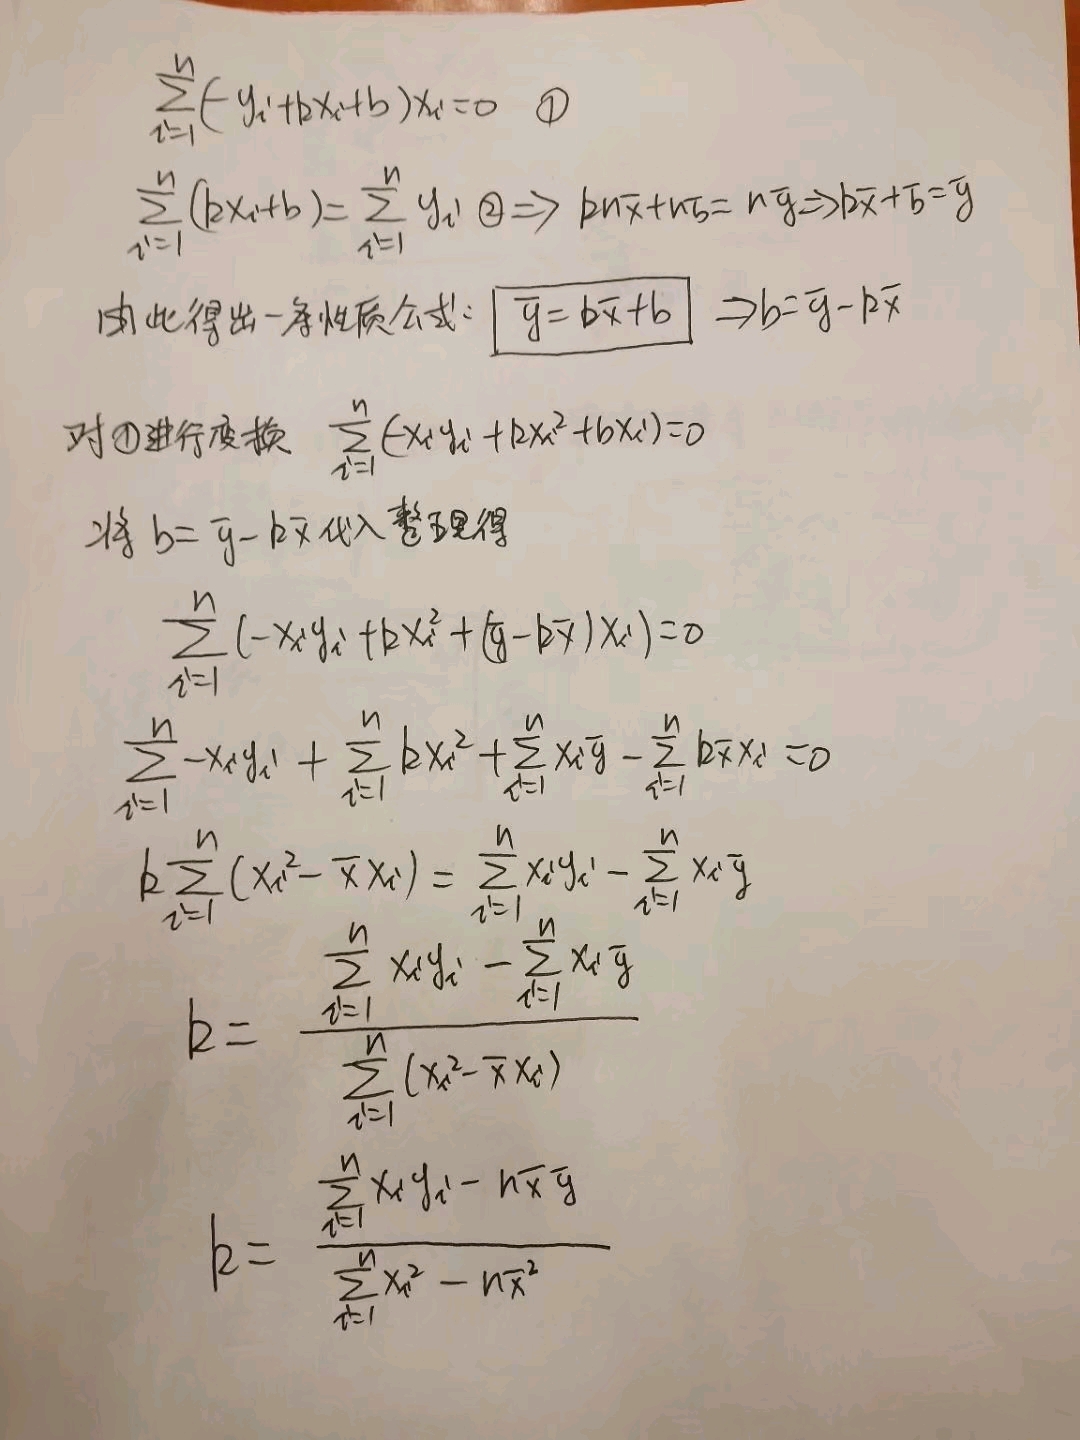 \sum_{i=1}^{n}(-y_i+kx_i+b)x_i=0 ①
\sum_{i=1}^{n}(kx_i+b)=\sum_{i=1}^{n}y_i ② ⇒ kn\bar{x}+n\bar{b}=n\bar{y} ⇒ k\bar{x}+\bar{b}=\bar{y}
由此得出一条性质公式: \bar{y}=k\bar{x}+b ⇒ b=\bar{y}-k\bar{x}
对①进行变换 \sum_{i=1}^{n}(-x_iy_i+kx_i^2+bx_i)=0
将 b=\bar{y}-k\bar{x} 代入整理得
\sum_{i=1}^{n}(-x_iy_i+kx_i^2+(\bar{y}-k\bar{x})x_i)=0
\sum_{i=1}^{n}-x_iy_i+\sum_{i=1}^{n}kx_i^2+\sum_{i=1}^{n}x_i\bar{y}-\sum_{i=1}^{n}k\bar{x}x_i=0
k\sum_{i=1}^{n}(x_i^2-\bar{x}x_i)=\sum_{i=1}^{n}x_iy_i-\sum_{i=1}^{n}x_i\bar{y}
k=\frac{\sum_{i=1}^{n}x_iy_i-\sum_{i=1}^{n}x_i\bar{y}}{\sum_{i=1}^{n}(x_i^2-\bar{x}x_i)}
k=\frac{\sum_{i=1}^{n}x_iy_i-n\bar{x}\bar{y}}{\sum_{i=1}^{n}x_i^2-n\bar{x}^2}